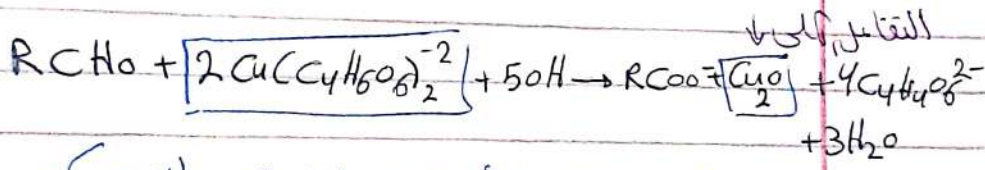 التفاعل الكلي ↓
RCHO + 2Cu(C₄H₆O₆)₂⁻² + 5OH → RCOO⁻ + Cu₂O + 4C₄H₄O₆²⁻
+3H₂O